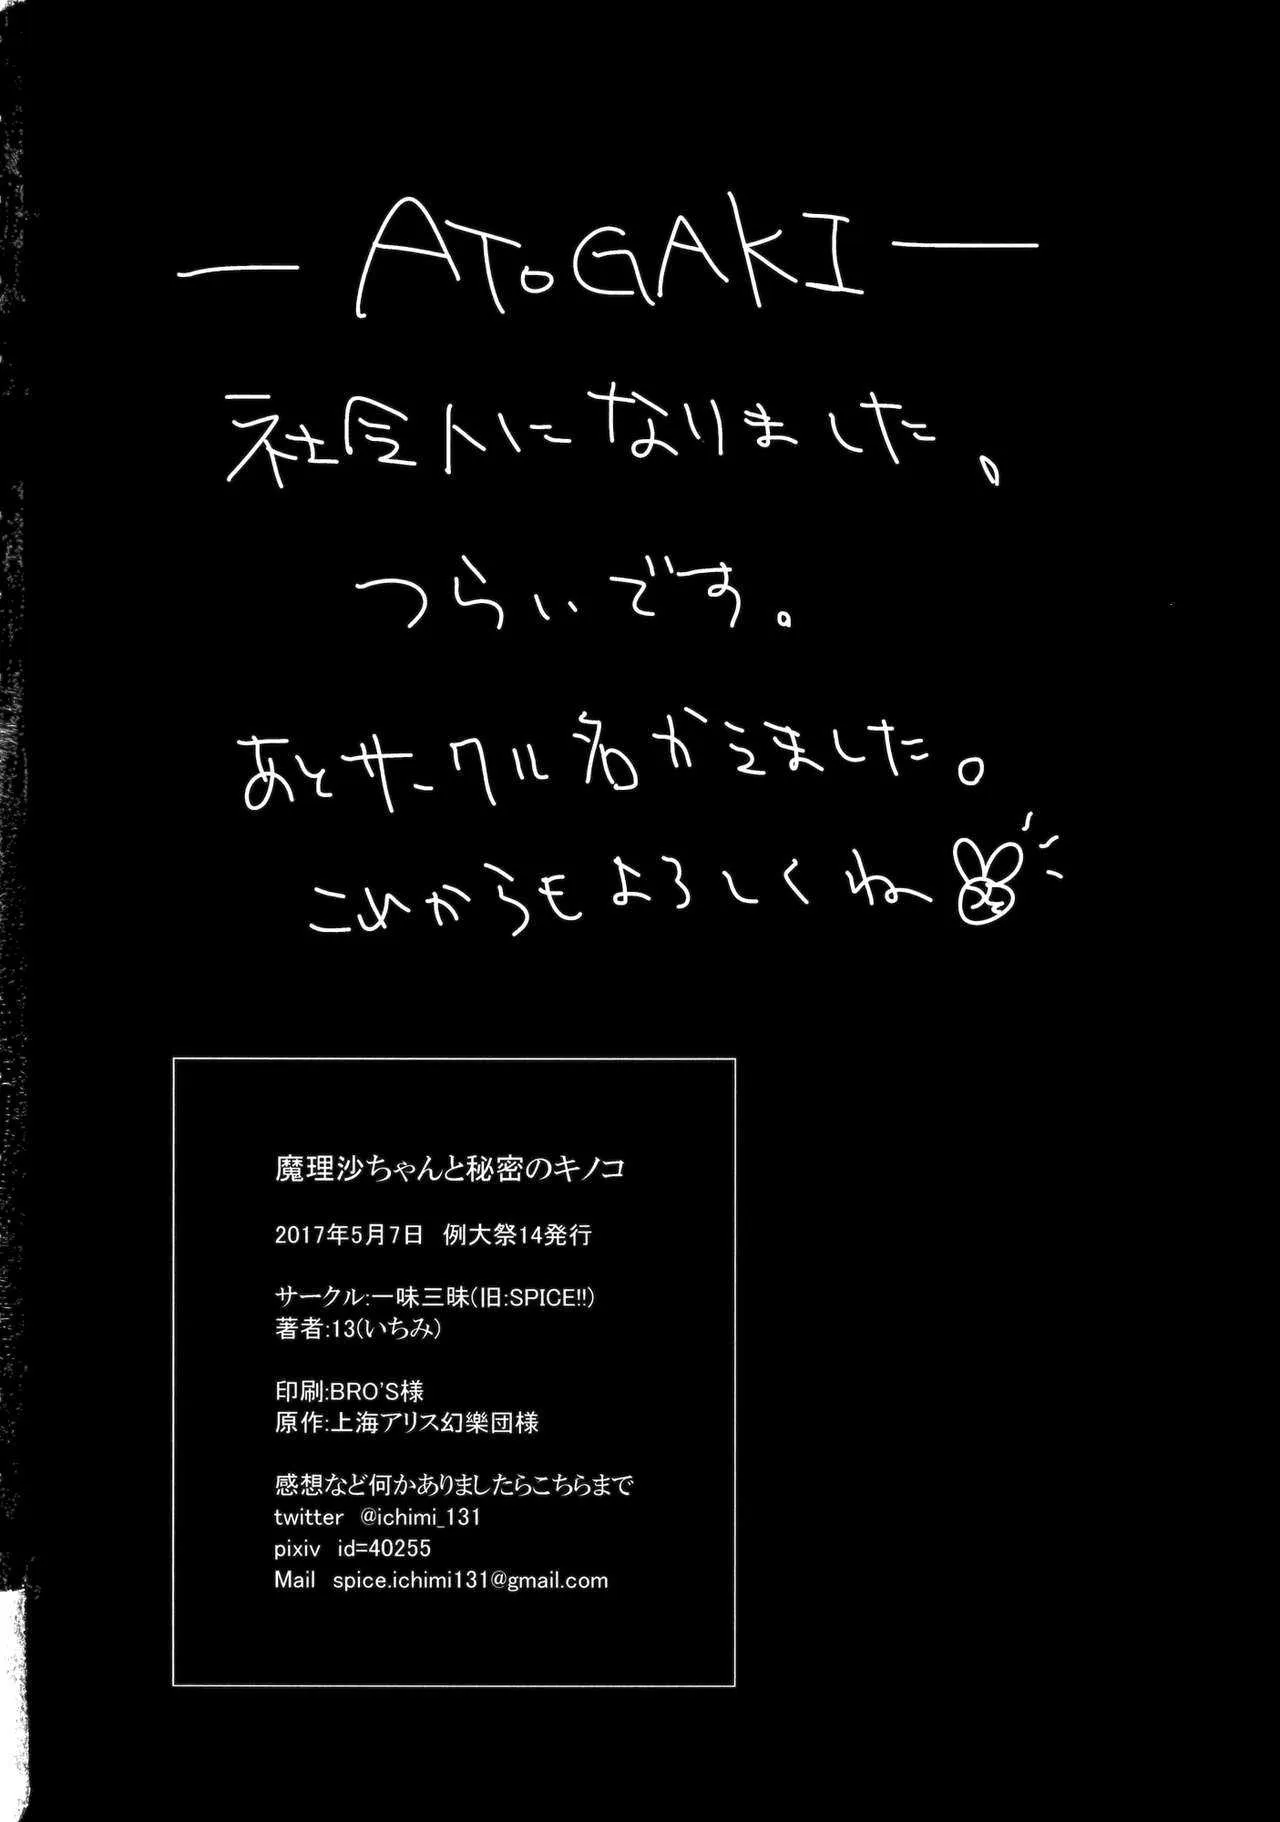 ATOGAKI
社会人になりました。
つらいです。
あとサークル名かえました。
これからもよろしくね
魔理沙ちゃんと秘密のキノコ
2017年5月7日 例大祭14発行
サークル:一味三昧(旧:SPICE!!)
著者:13(いちみ)
印刷:BRO'S様
原作:上海アリス幻樂団様
感想など何かありましたらこちらまで
twitter @ichimi_131
pixiv id=40255
Mail spice.ichimi131@gmail.com